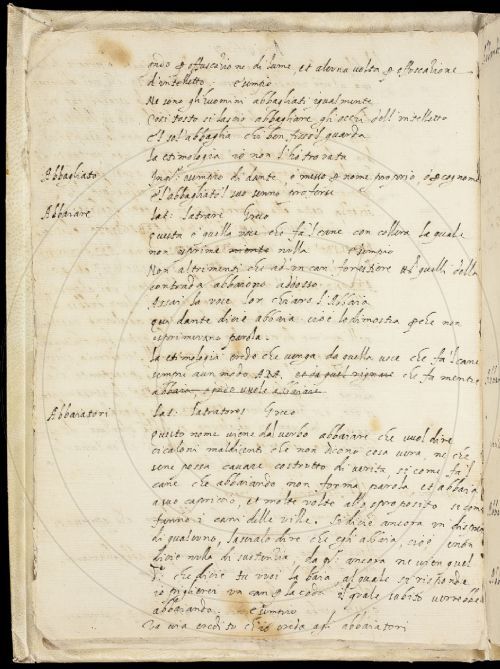 onde p offuscatione di lume, et alcuna volta p offuscatione
d'intelletto esempio
Ne sono gli huomini abbagliati igualmente
Cosi tosto si lascio abbagliare gli occhi dell'intelletto
E'l sol abbaglia chi ben fisso'l guarda
la etimologia io non l'ho trovata
Abbagliato
Ingl di dante è messo p nome proprio, ò p cognome
e l'abbagliato'l suo senno
Abbaiare
lat: latrare Greco
questa è quella voce che fa'l cane con collera la quale
non isprime niente nulla esempio
Non altrimenti che ad un can forestiere quelli della
contrada abbaiono addosso.
Assai la voce lor chiaro l'abbaia
qui dante dice abbaia cioè lo dimostra p che non
esprimevano parola.
la etimologia credo che venga da quella voce che fa'l cane
sempre a un modo che fa mentre
abbaia
Abbaiatori
lat: latratores Greco
questo nome viene dal verbo abbaiare che vuol dire
cicaloni maldicenti che non dicono cosa vera, ne che
sene possa cavare costrutto di verità si come fa'l
cane che abbaiando non forma parola et abbaia
a suo capriccio, et molte volte allo sproposito si come
fanno i cani delle ville. Si dice ancora in
di qualcuno, lascialo dire che egli abbaia, cioè e non
dice nulla di sustantia, da qui ancora ne vien quel
che dice tu vuoi la baia, al quale si risponde
io piglierei un can p la coda il quale subito verrebbe
abbaiando. esempio
Va via credi tu ch'io creda agli abbaiatori